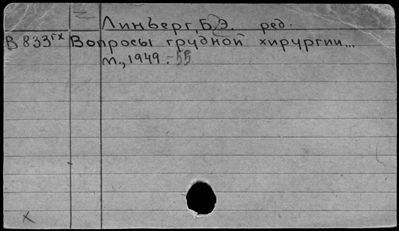 Линберг, Б.Э. ред.
В 833гх Вопросы грудной хирургии...
М., 1949.-55
х